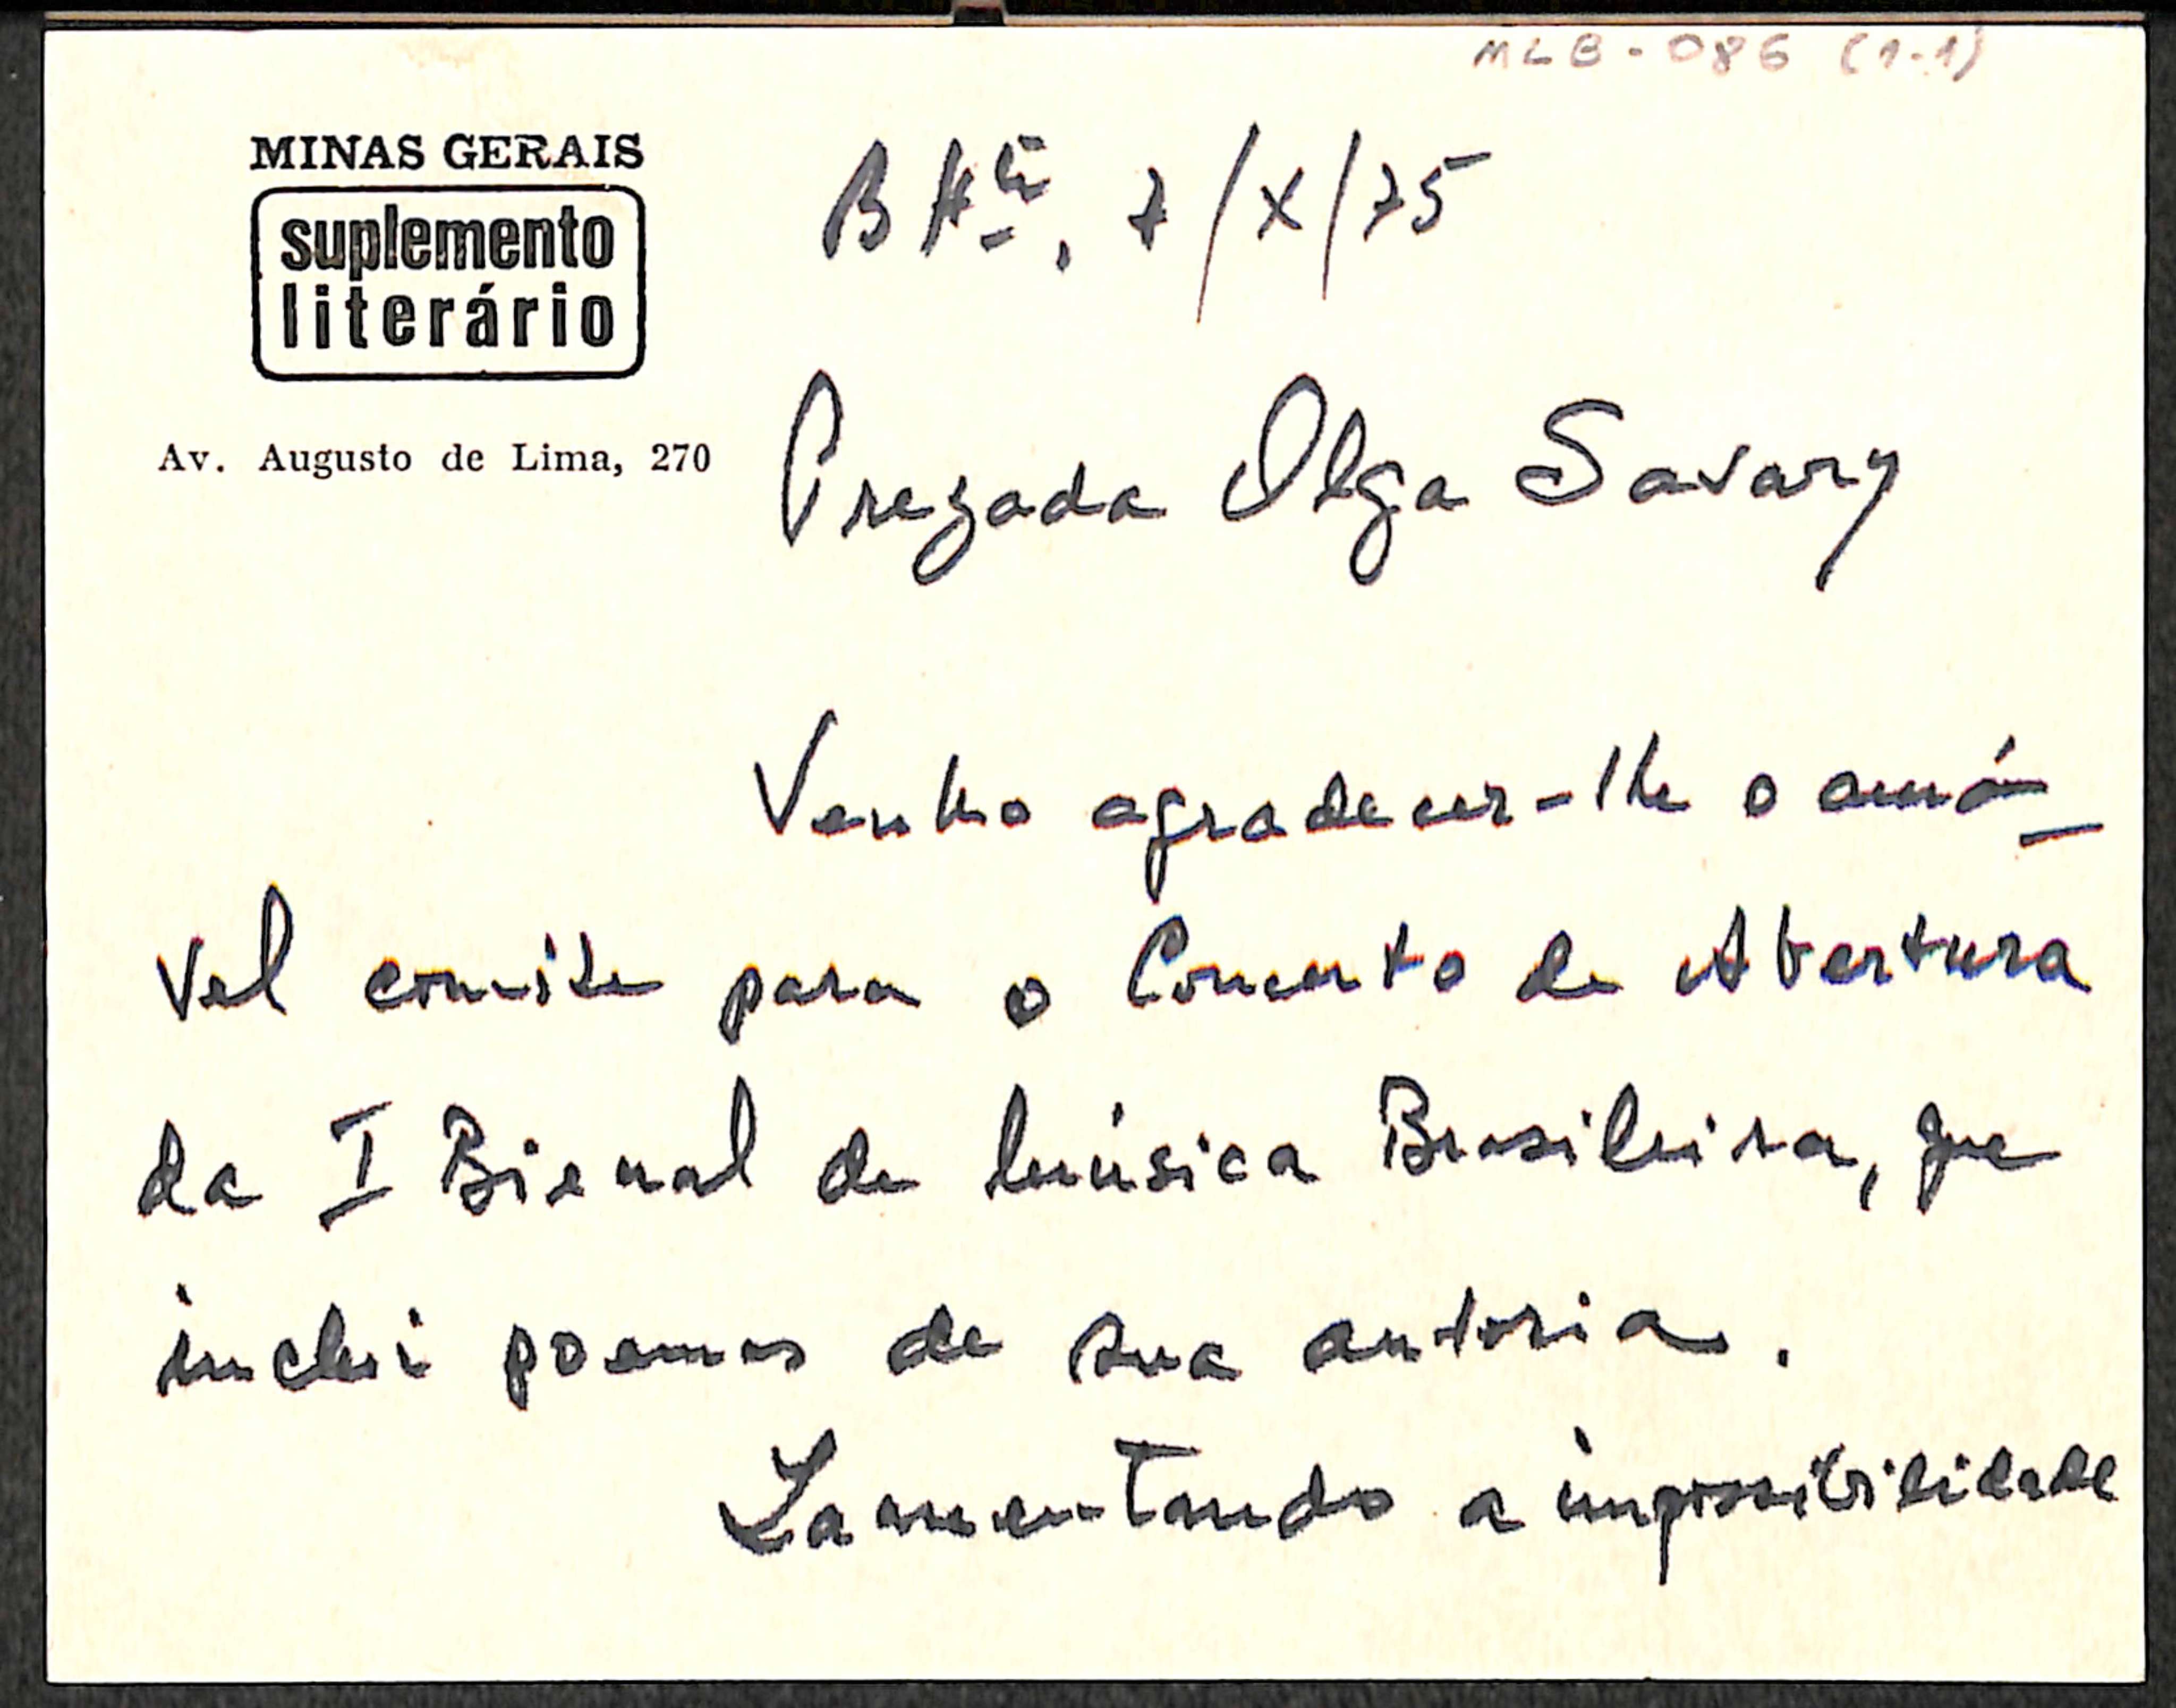 MLB-086 (1-1)
MINAS GERAIS
suplemento
literário
Av. Augusto de Lima, 270
B Hte, 7/X/75
Prezada Olga Savary
Venho agradecer-lhe o amá-
vel convite para o Concerto de Abertura
da I Bienal de Música Brasileira, que
inclui poemas de sua autoria.
Lamentando a impossibilidade